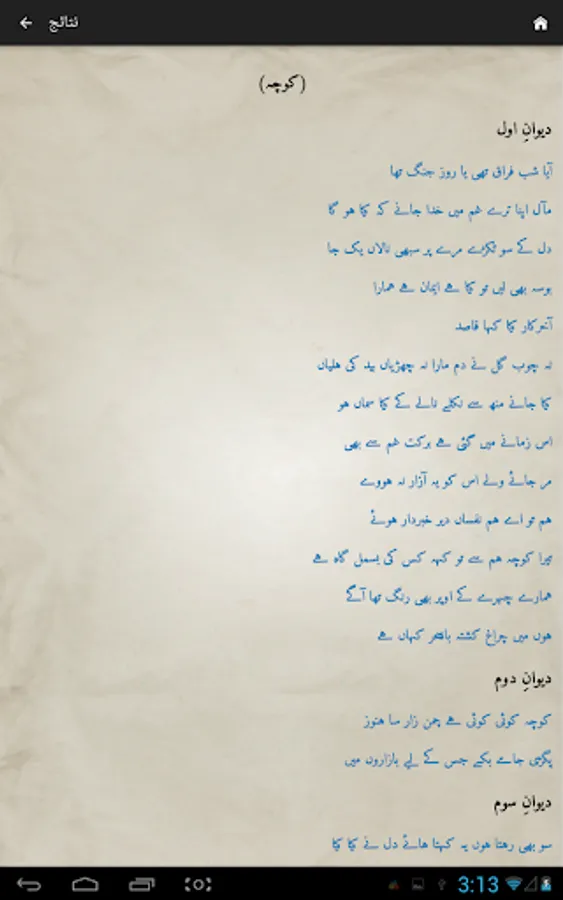 نتائج
(کوچہ)
دیوانِ اول
آیا شب فراق تھی یا روز جنگ تھا
مآل اپنا ترے غم میں خدا جانے کہ کیا ہو گا
دل کے سو ٹکڑے مرے پر سبھی نالاں یک جا
بوسہ بھی لیں تو کیا ہے ایمان ہے ہمارا
آخرکار کیا کہا قاصد
نہ چوب گل نے دم مارا نہ چھڑیاں بید کی ہلیاں
کیا جانے منھ سے نکلے نالے کے کیا سماں ہو
اس زمانے میں گئی ہے برکت غم سے بھی
مر جائے ولے اس کو یہ آزار نہ ہووے
ہم تو اے ہم نفساں دیر خبردار ہوئے
تیرا کوچہ ہم سے تو کہہ کس کی بسمل گاہ ہے
ہمارے چہرے کے اوپر بھی رنگ تھا آگے
ہوں میں چراغ کشتہ بادسحر کہاں ہے
دیوانِ دوم
کوچہ کوئی کوئی ہے چمن زار سا ہنوز
پگڑی جامے بکے جس کے لیے بازاروں میں
دیوانِ سوم
سو بھی رہتا ہوں یہ کہتا ہائے دل نے کیا کیا
3:13